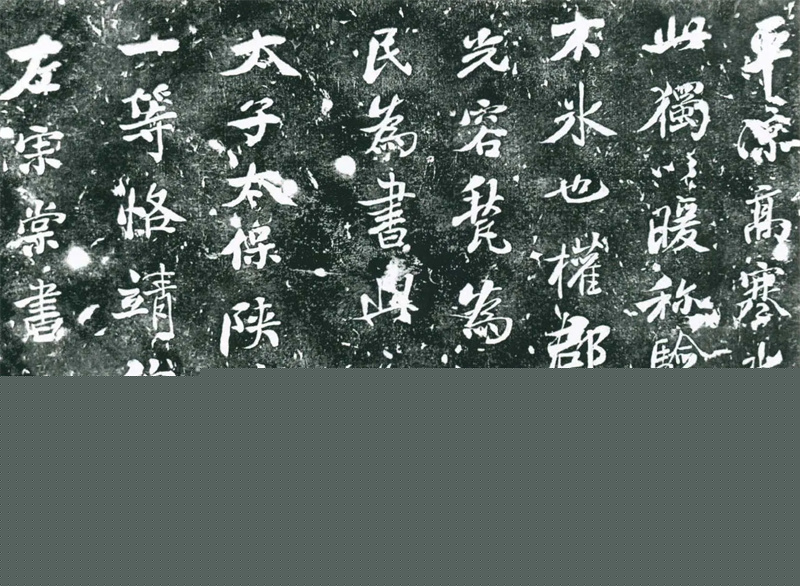 平凉高寒水
此獨以暖称驗
木氷也權郡
光容甃為
民為書此
太子太保陕
一等恪靖
左宗棠書